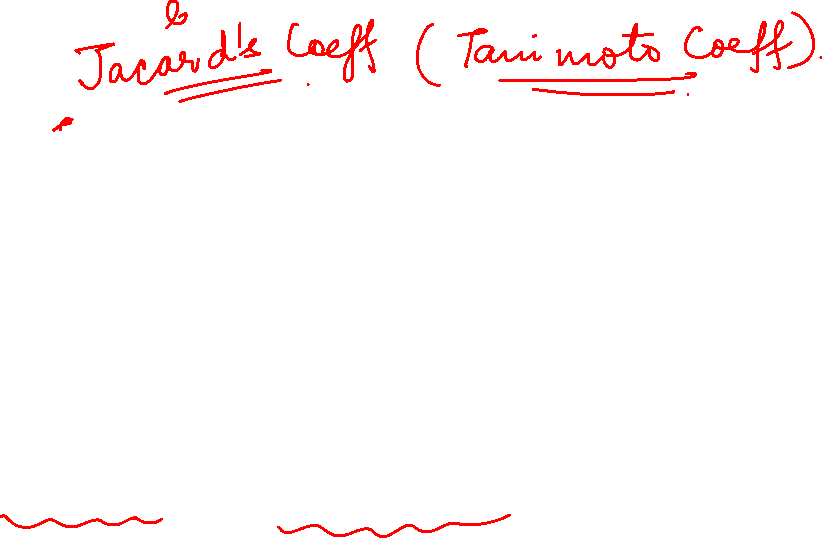 Jacard's Coeff (Tanimoto Coeff).